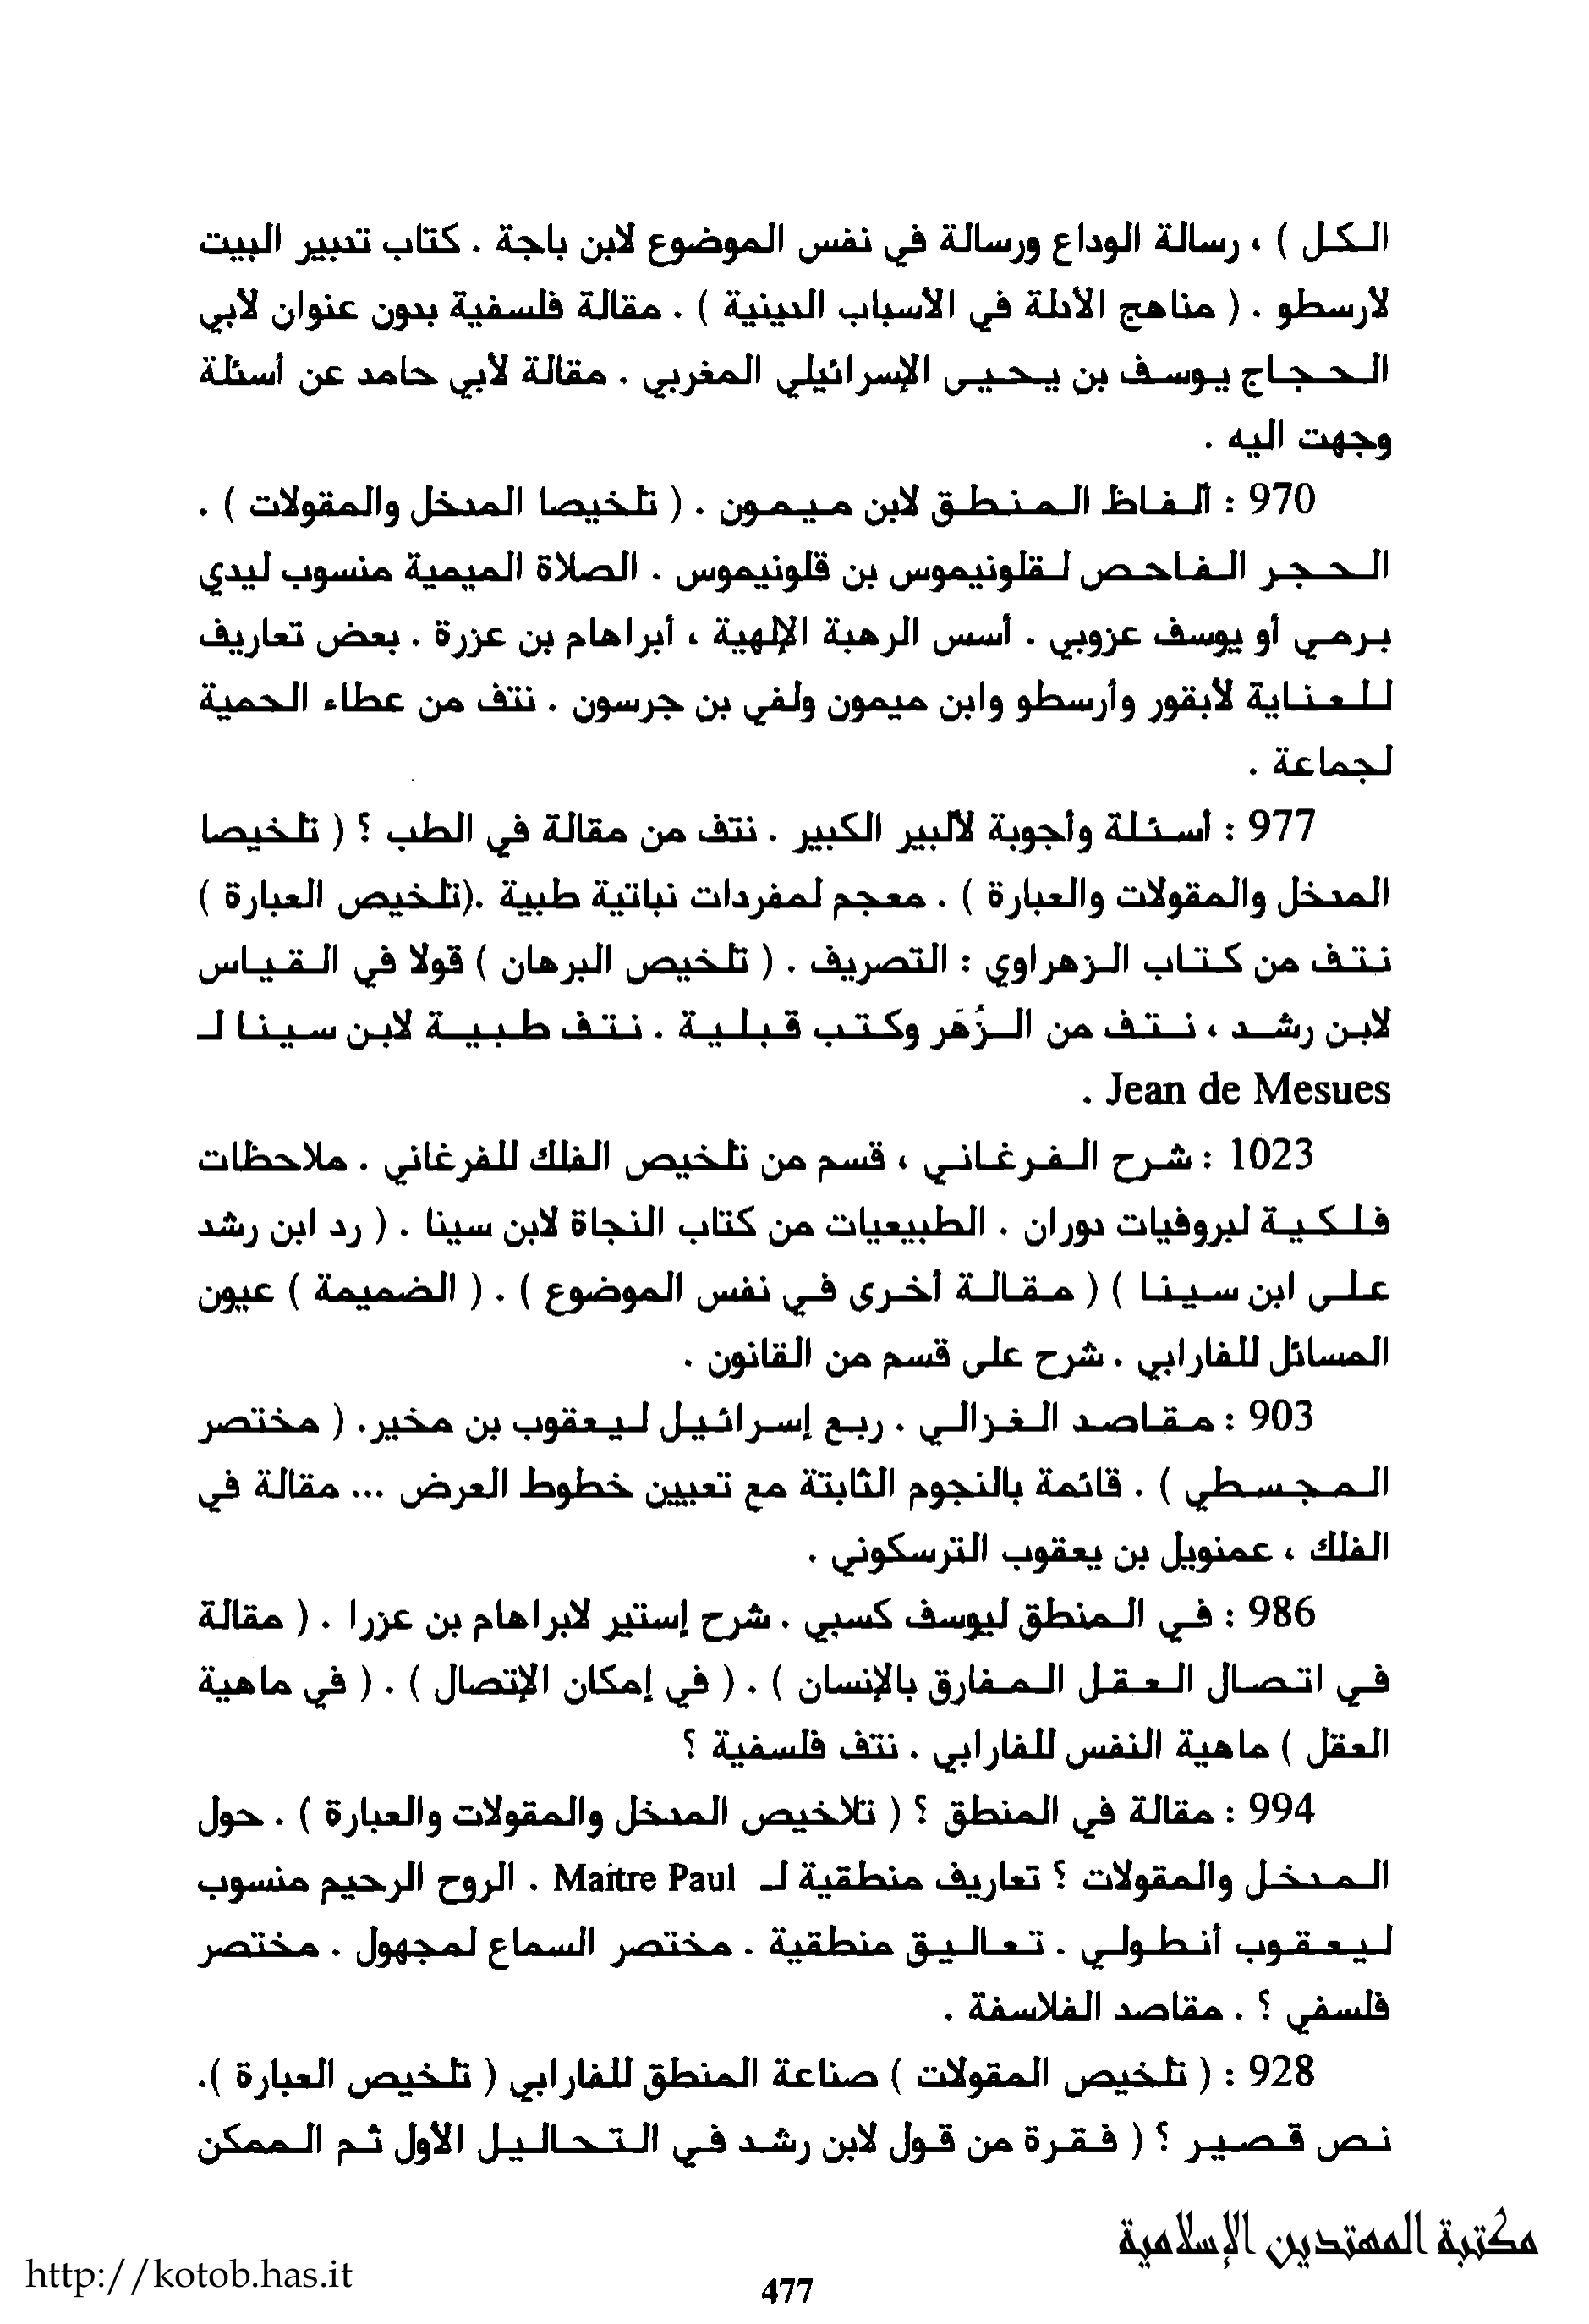 الكل ) ، رسالة الوداع ورسالة في نفس الموضوع لابن باجة . كتاب تدبير البيت
لأرسطو . ( مناهج الأدلة في الأسباب الدينية ) . مقالة فلسفية بدون عنوان لأبي
الحجاج يوسف بن يحيى الإسرائيلي المغربي . مقالة لأبي حامد عن أسئلة
وجهت اليه .
970 : ألفاظ المنطق لابن ميمون . ( تلخيصا المدخل والمقولات ) .
الحجر الفاحص لقلونيموس بن قلونيموس . الصلاة الميمية منسوب ليدي
برمي أو يوسف عزوبي . أسس الرهبة الإلهية ، أبراهام بن عزرة . بعض تعاريف
للعناية لأبقور وأرسطو وابن ميمون ولفي بن جرسون . نتف من عطاء الحمية
لجماعة .
977 : أسئلة وأجوبة لألبير الكبير . نتف من مقالة في الطب ؟ ( تلخيصا
المدخل والمقولات والعبارة ) . معجم لمفردات نباتية طبية .(تلخيص العبارة )
نتف من كتاب الزهراوي : التصريف . ( تلخيص البرهان ) قولا في القياس
لابن رشد ، نتف من الزُهَر وكتب قبلية . نتف طبية لابن سينا لـ
Jean de Mesues .
1023 : شرح الفرغاني ، قسم من تلخيص الفلك للفرغاني . ملاحظات
فلكية لبروفيات دوران . الطبيعيات من كتاب النجاة لابن سينا . ( رد ابن رشد
على ابن سينا ) ( مقالة أخرى في نفس الموضوع ) . ( الضميمة ) عيون
المسائل للفارابي . شرح على قسم من القانون .
903 : مقاصد الغزالي . ربع إسرائيل ليعقوب بن مخير. ( مختصر
المجسطي ) . قائمة بالنجوم الثابتة مع تعيين خطوط العرض ... مقالة في
الفلك ، عمنويل بن يعقوب الترسكوني .
986 : في المنطق ليوسف كسبي . شرح إستير لابراهام بن عزرا . ( مقالة
في اتصال العقل المفارق بالإنسان ) . ( في إمكان الإتصال ) . ( في ماهية
العقل ) ماهية النفس للفارابي . نتف فلسفية ؟
994 : مقالة في المنطق ؟ ( تلاخيص المدخل والمقولات والعبارة ) . حول
المدخل والمقولات ؟ تعاريف منطقية لـ Maitre Paul . الروح الرحيم منسوب
ليعقوب أنطولي . تعاليق منطقية . مختصر السماع لمجهول . مختصر
فلسفي ؟ . مقاصد الفلاسفة .
928 : ( تلخيص المقولات ) صناعة المنطق للفارابي ( تلخيص العبارة ).
نص قصير ؟ ( فقرة من قول لابن رشد في التحاليل الأول ثم الممكن
مكتبة المهتدين الإسلامية
http://kotob.has.it
477